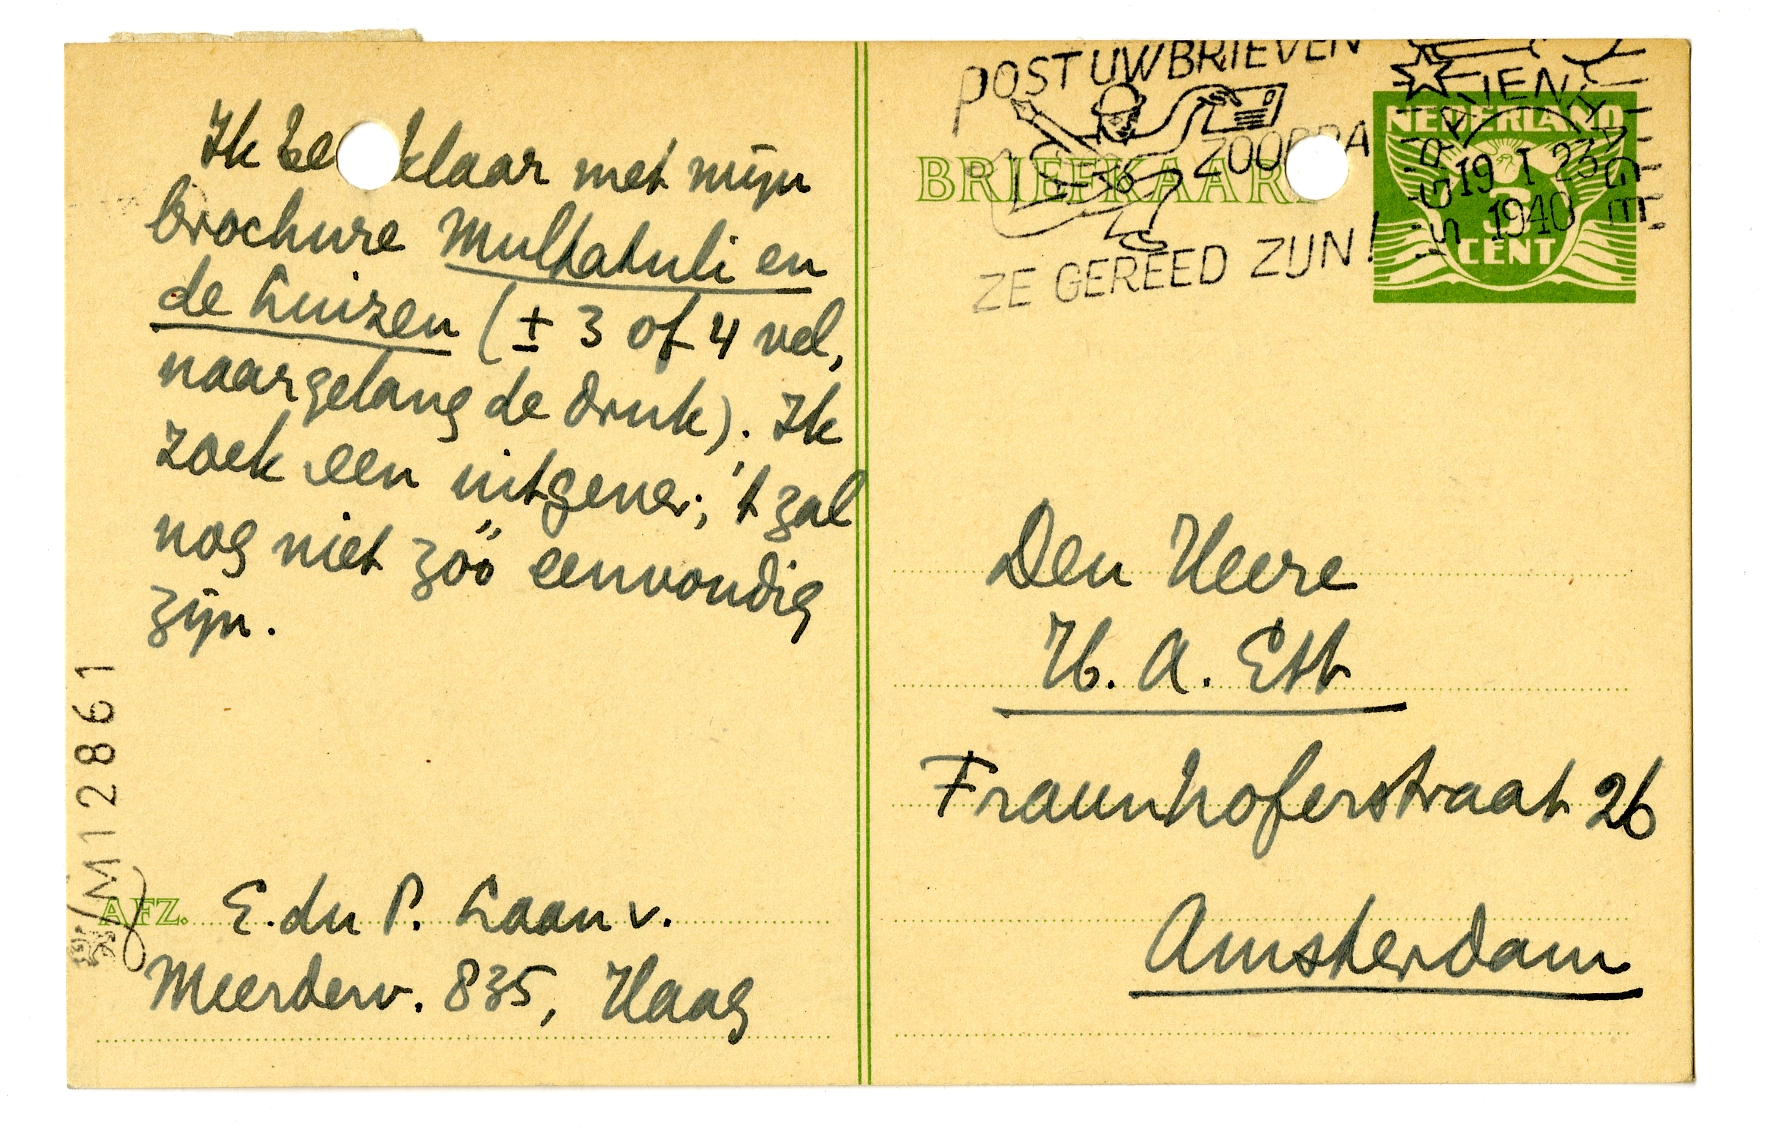 Ik be klaar met mijn
brochure Multatuli en
de Luizen (± 3 of 4 vel,
naargelang de druk). Ik
zoek een uitgever; 't zal
nog niet zóó eenvoudig
zijn.
M12861
AFZ. E. du P. Laan v.
Meerderv. 835, Haag
POST UW BRIEVEN
ZOODRA
ZE GEREED ZIJN!
BRIEFKAAR
'S GRAVENHAGE
19 I 23
1940
NEDERLAND
CENT
Den Heere
H. A. Ett
Fraunhoferstraat 26
Amsterdam